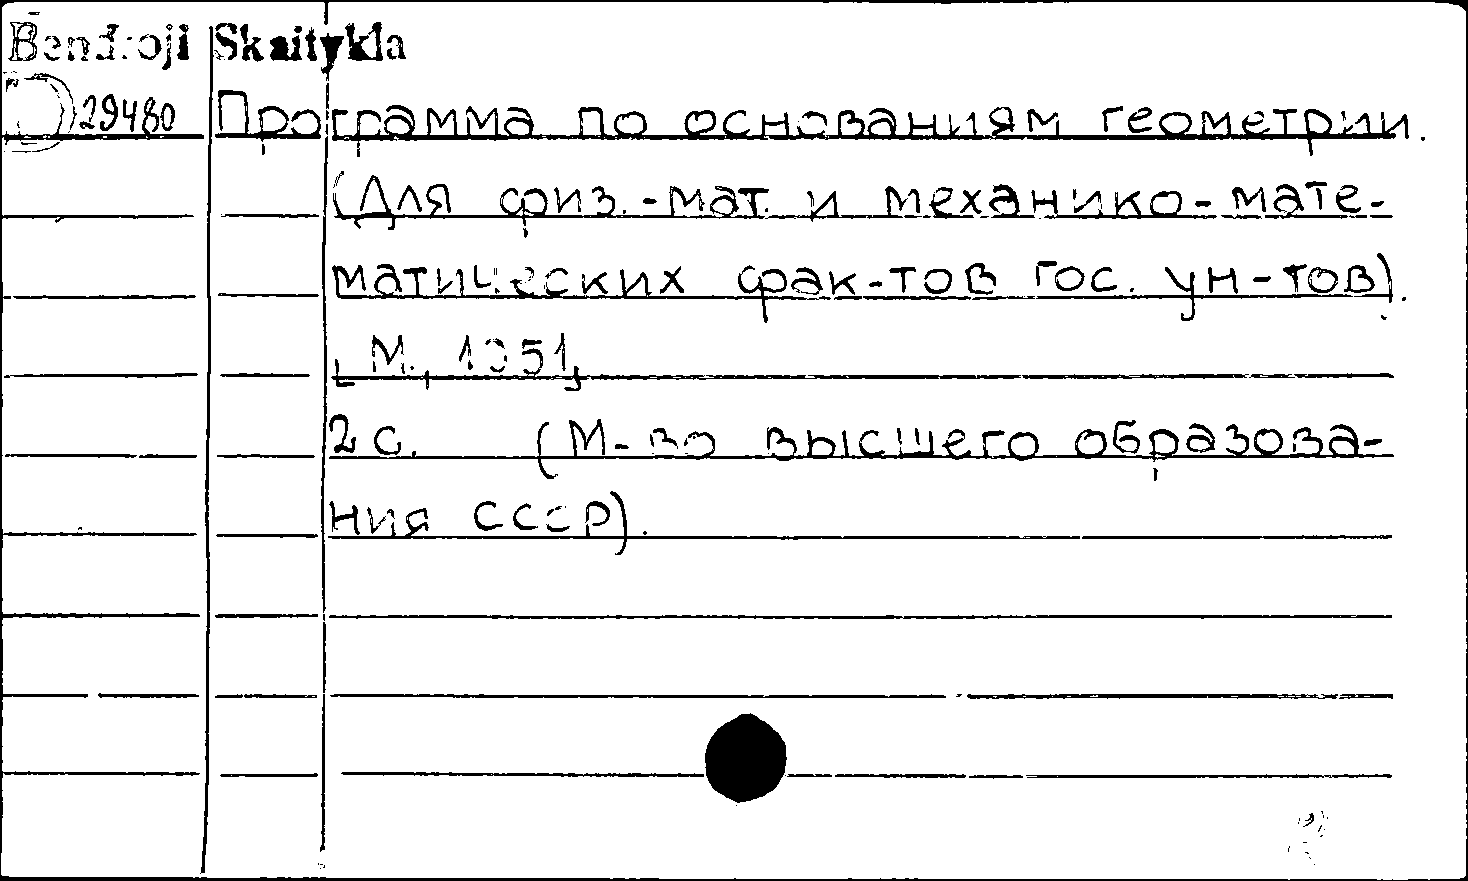 Bendroji Skaitykla
D 29480 Программа по основаниям геометрии.
(Для физ.-мат. и механико-мате-
матических фак-тов гос. ун-тов).
[М., 1951]
2 с. (М-во высшего образова-
ния СССР).